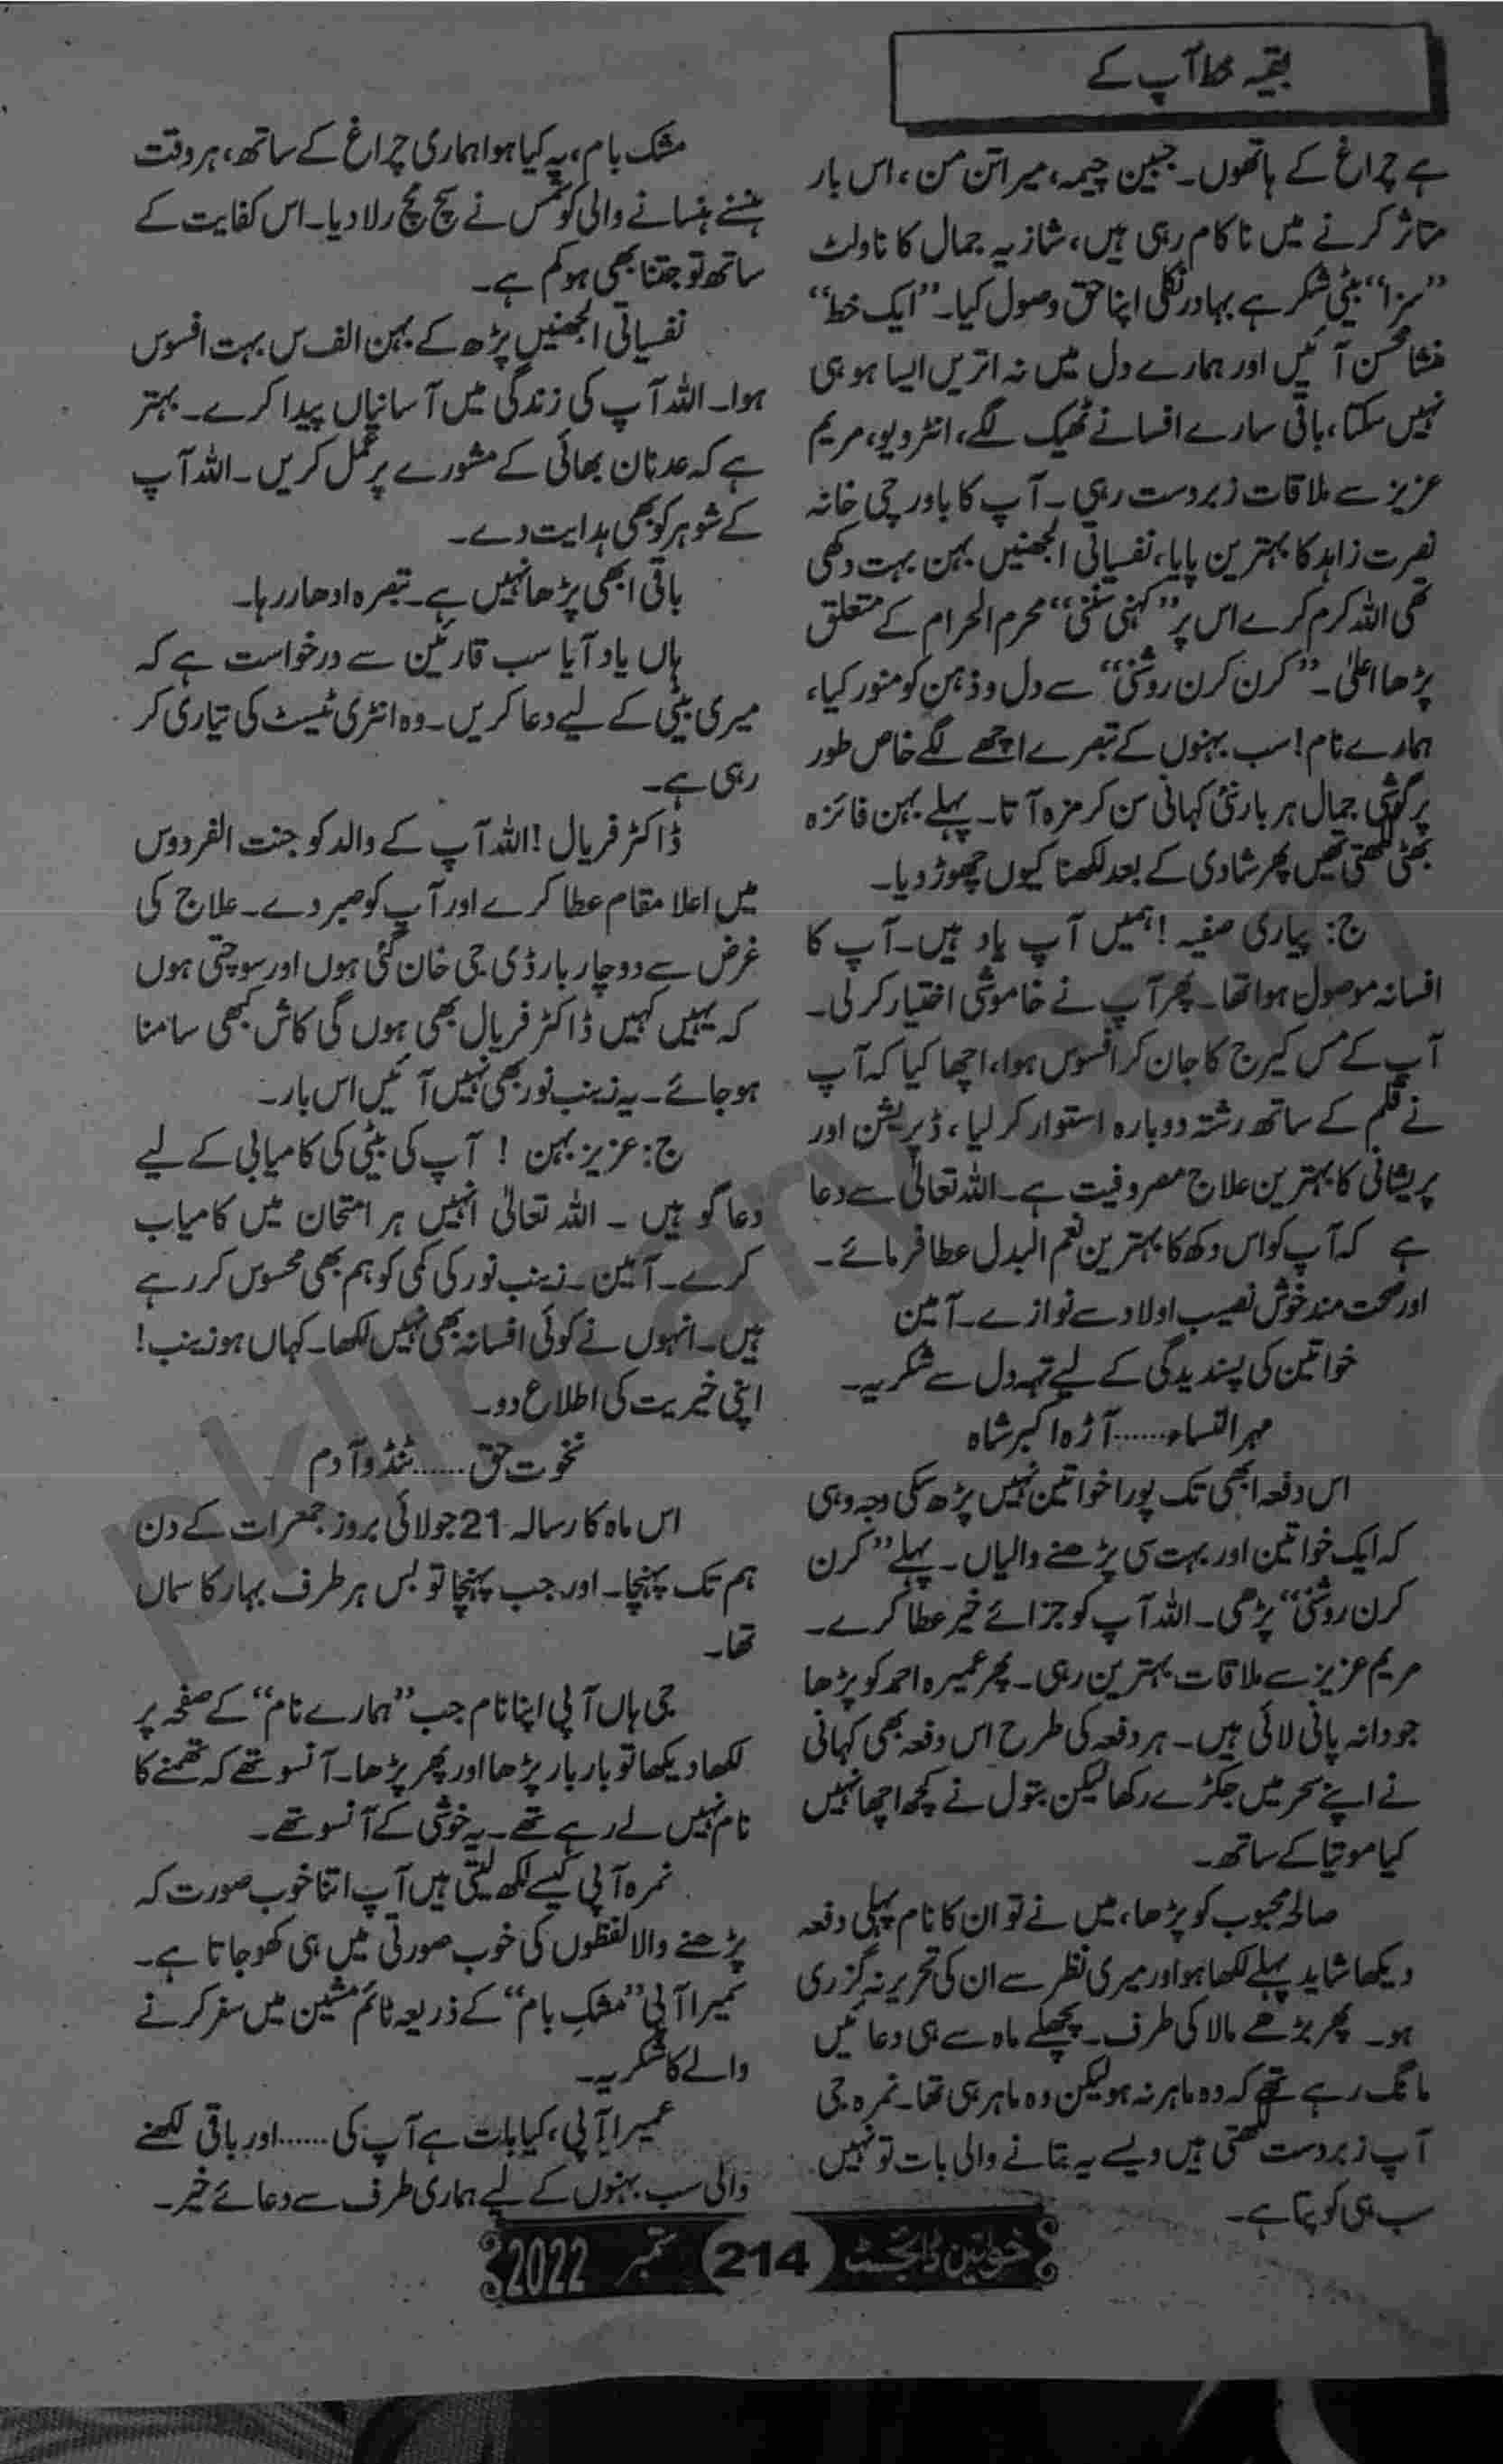 بقیہ خط آپ کے
ہے چراغ کے ہاتھوں۔ جبین چیمہ، میرا تن من، اس بار
متاثر کرنے میں ناکام رہی ہیں، شازیہ جمال کا ناولٹ
”سزا“ بیٹی شکر ہے بہادر نکلی اپنا حق وصول کیا۔ ”ایک خط“
منشا محسن آئیں اور ہمارے دل میں نہ اتریں ایسا ہو ہی
نہیں سکتا، باقی سارے افسانے ٹھیک لگے، انٹرویو، مریم
عزیز سے ملاقات زبردست رہی۔ آپ کا باورچی خانہ
نصرت زاہد کا بہترین پایا، نفسیاتی الجھنیں بہن بہت دکھی
تھی اللہ کرم کرے اس پر ”کہنی سننی“ محرم الحرام کے متعلق
پڑھا اعلیٰ۔ ”کرن کرن روشنی“ سے دل و ذہن کو منور کیا،
ہمارے نام! سب بہنوں کے تبصرے اچھے لگے خاص طور
پر گوشی جمال ہر بار نئی کہانی سن کر مزہ آتا۔ پہلے بہن فائزہ
بھٹی لکھتی تھیں پھر شادی کے بعد لکھنا کیوں چھوڑ دیا۔
ج: پیاری صفیہ! ہمیں آپ یاد ہیں۔ آپ کا
افسانہ موصول ہوا تھا۔ پھر آپ نے خاموشی اختیار کر لی۔
آپ کے مس کیرج کا جان کر افسوس ہوا، اچھا کیا کہ آپ
نے قلم کے ساتھ رشتہ دوبارہ استوار کر لیا، ڈپریشن اور
پریشانی کا بہترین علاج مصروفیت ہے۔ اللہ تعالیٰ سے دعا
ہے کہ آپ کو اس دکھ کا بہترین نعم البدل عطا فرمائے۔
اور صحت مند خوش نصیب اولاد سے نوازے۔ آمین
خواتین کی پسندیدگی کے لیے تہہ دل سے شکریہ۔
مہر النساء......آڑہ اکبر شاہ
اس دفعہ ابھی تک پورا خواتین نہیں پڑھ سکی وجہ وہی
کہ ایک خواتین اور بہت سی پڑھنے والیاں۔ پہلے ”کرن
کرن روشنی“ پڑھی۔ اللہ آپ کو جزائے خیر عطا کرے۔
مریم عزیز سے ملاقات بہترین رہی۔ پھر عمیرہ احمد کو پڑھا
جو دانہ پانی لائی ہیں۔ ہر دفعہ کی طرح اس دفعہ بھی کہانی
نے اپنے سحر میں جکڑے رکھا لیکن بتول نے کچھ اچھا نہیں
کیا موتیا کے ساتھ۔
صالحہ محبوب کو پڑھا، میں نے تو ان کا نام پہلی دفعہ
دیکھا شاید پہلے لکھا ہو اور میری نظر سے ان کی تحریر نہ گزری
ہو۔ پھر بڑھے مالا کی طرف۔ پچھلے ماہ سے ہی دعائیں
مانگ رہے تھے کہ وہ ماہر نہ ہو لیکن وہ ماہر ہی تھا۔ نمرہ جی
آپ زبردست لکھتی ہیں ویسے یہ بتانے والی بات تو نہیں
سب ہی کو پتا ہے۔
مشک بام، یہ کیا ہوا ہماری چراغ کے ساتھ، ہر وقت
ہنسنے ہنسانے والی کو شمس نے سچ مچ رلا دیا۔ اس کفایت کے
ساتھ تو جتنا بھی ہو کم ہے۔
نفسیاتی الجھنیں پڑھ کے بہن الف س بہت افسوس
ہوا۔ اللہ آپ کی زندگی میں آسانیاں پیدا کرے۔ بہتر
ہے کہ عدنان بھائی کے مشورے پر عمل کریں۔ اللہ آپ
کے شوہر کو بھی ہدایت دے۔
باقی ابھی پڑھا نہیں ہے۔ تبصرہ ادھار رہا۔
ہاں یاد آیا سب قارئین سے درخواست ہے کہ
میری بیٹی کے لیے دعا کریں۔ وہ انٹری ٹیسٹ کی تیاری کر
رہی ہے۔
ڈاکٹر فریال! اللہ آپ کے والد کو جنت الفردوس
میں اعلا مقام عطا کرے اور آپ کو صبر دے۔ علاج کی
غرض سے دو چار بار ڈی جی خان گئی ہوں اور سوچتی ہوں
کہ یہیں کہیں ڈاکٹر فریال بھی ہوں گی کاش کبھی سامنا
ہو جائے۔ یہ زینب نور بھی نہیں آئیں اس بار۔
ج: عزیز بہن! آپ کی بیٹی کی کامیابی کے لیے
دعا گو ہیں۔ اللہ تعالیٰ انہیں ہر امتحان میں کامیاب
کرے۔ آمین۔ زینب نور کی کمی کو ہم بھی محسوس کر رہے
ہیں۔ انہوں نے کوئی افسانہ بھی نہیں لکھا۔ کہاں ہو زینب!
اپنی خیریت کی اطلاع دو۔
نخوت حق......ٹنڈو آدم
اس ماہ کا رسالہ 21 جولائی بروز جمعرات کے دن
ہم تک پہنچا۔ اور جب پہنچا تو بس ہر طرف بہار کا سماں
تھا۔
جی ہاں آپی اپنا نام جب ”ہمارے نام“ کے صفحہ پر
لکھا دیکھا تو بار بار پڑھا اور پھر پڑھا۔ آنسو تھے کہ تھمنے کا
نام نہیں لے رہے تھے۔ یہ خوشی کے آنسو تھے۔
نمرہ آپی کیسے لکھ لیتی ہیں آپ اتنا خوب صورت کہ
پڑھنے والا لفظوں کی خوب صورتی میں ہی کھو جاتا ہے۔
سمیرا آپی ”مشک بام“ کے ذریعہ ٹائم مشین میں سفر کرنے
والے کا شکریہ۔
عمیرا آپی، کیا بات ہے آپ کی ...... اور باقی لکھنے
والی سب بہنوں کے لیے ہماری طرف سے دعائے خیر۔
خواتین ڈائجسٹ 214 ستمبر 2022
pklibrary.com